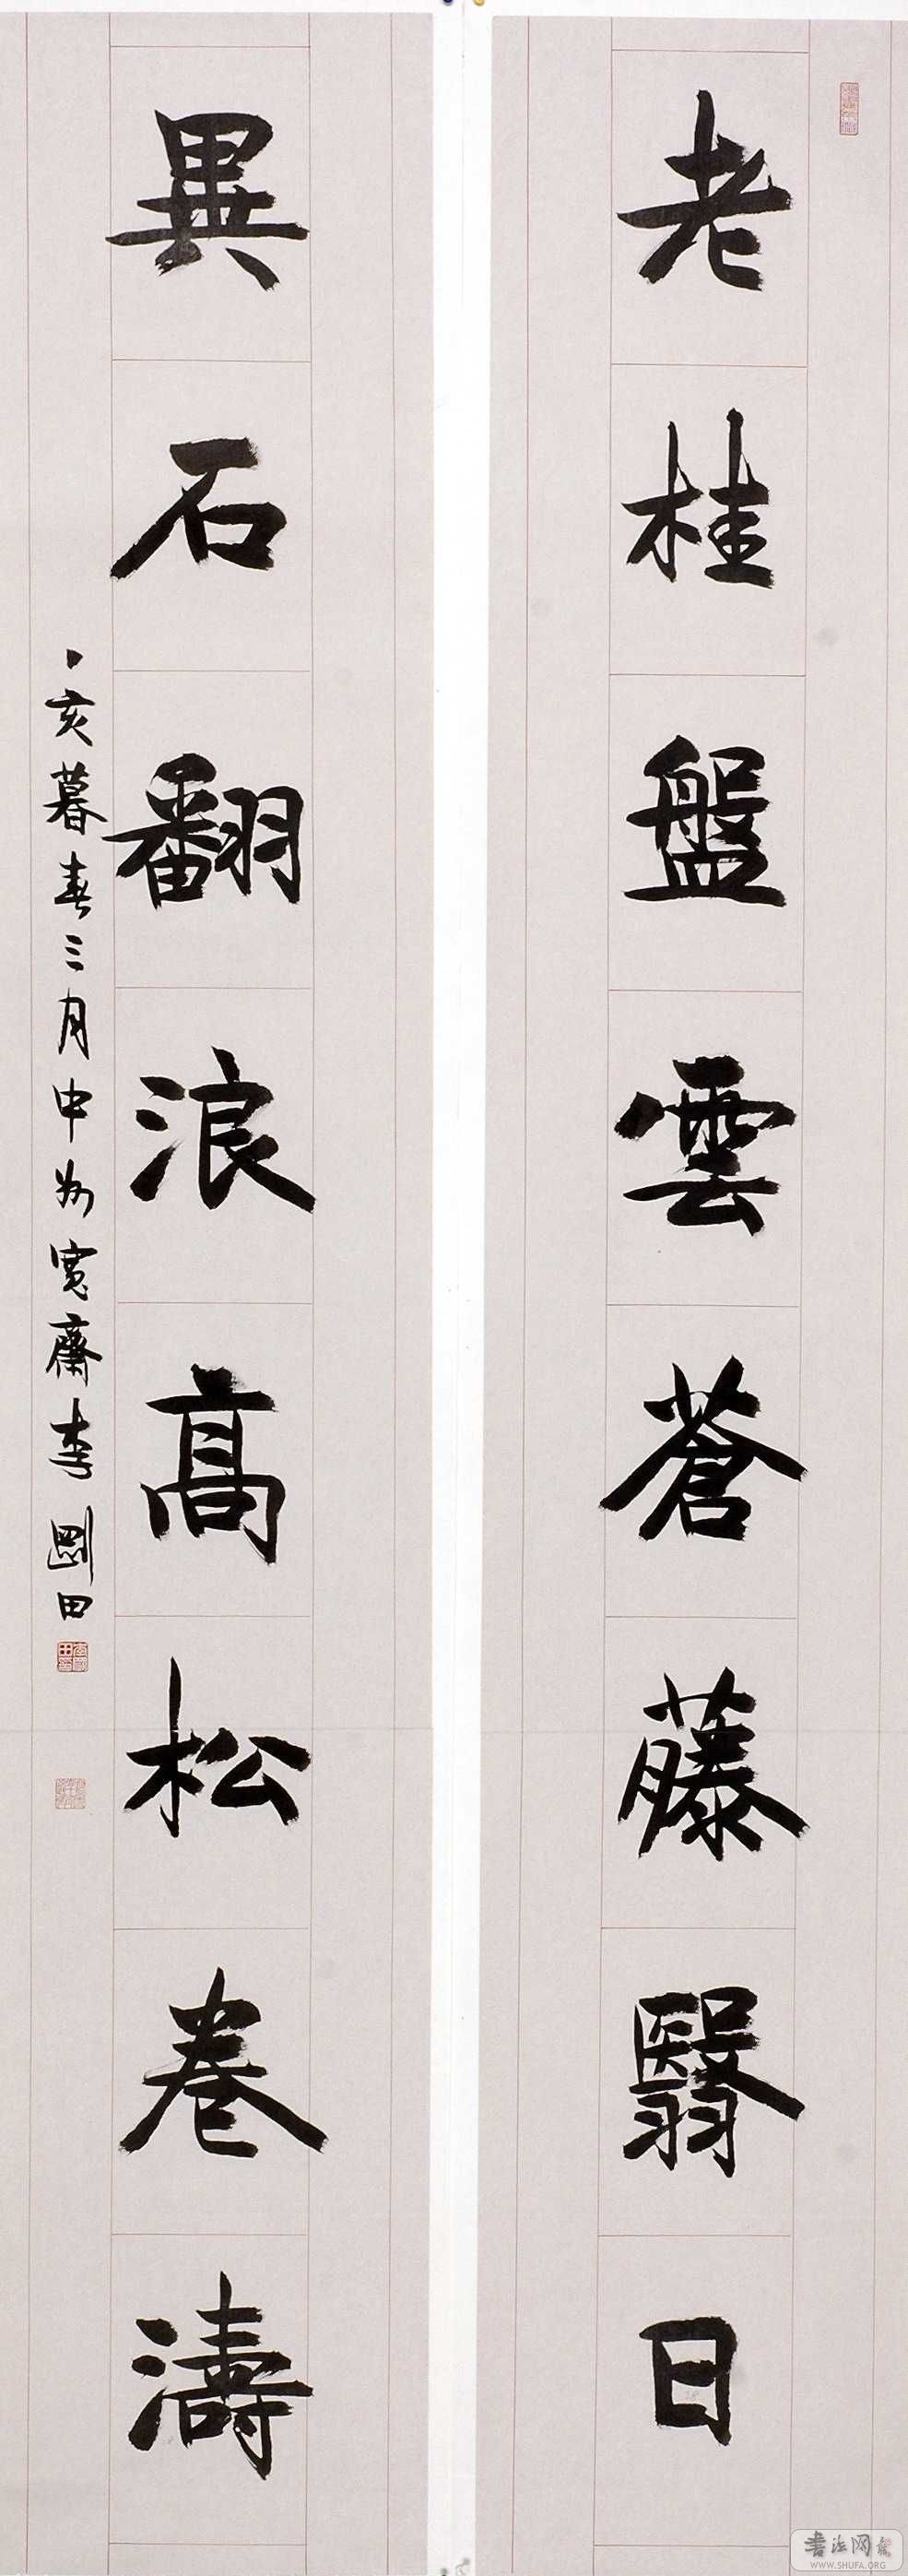 老桂盤雲蒼藤翳日
異石翻浪高松卷濤
丁亥暮春三月中州寬齋李剛田
書法网
WWW.SHUFA.ORG